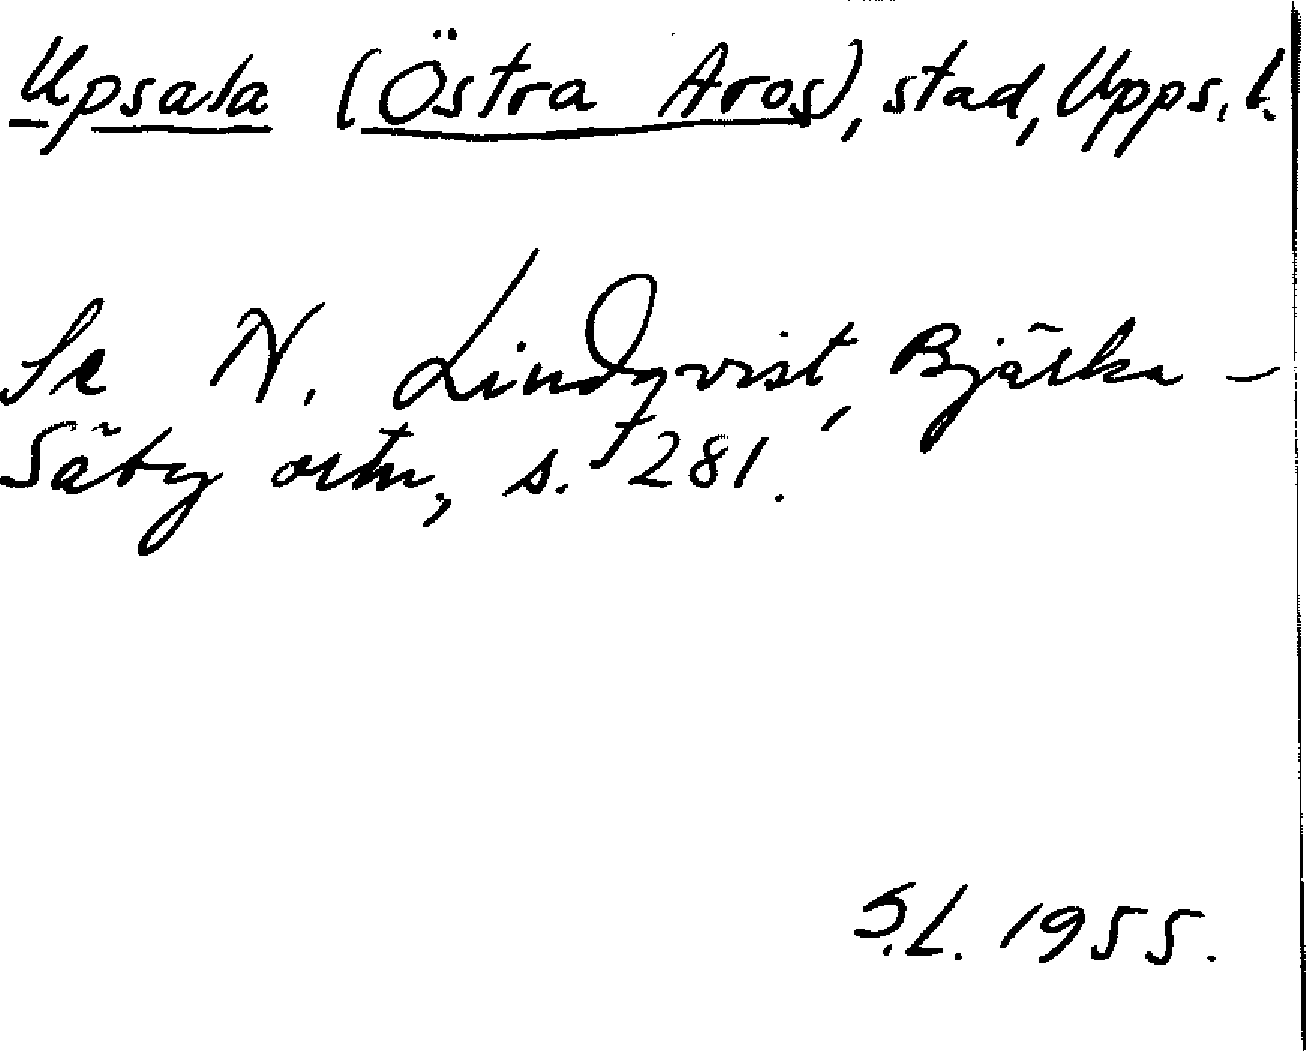 Upsala (Östra Aros), stad, Upps. l.
Se N. Lindqvist, Bjärka-
Säby ortn, s. f 281.
S.L. 1955.